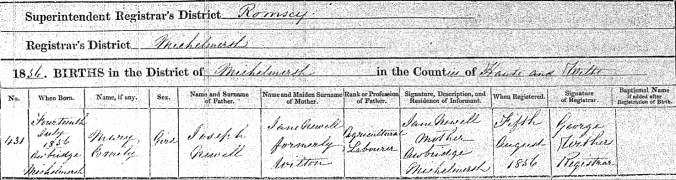 Superintendent Registrar's District Romsey.
Registrar's District Michelmersh
1856. BIRTHS in the District of Michelmersh in the Counties of Hants and Wilts
No. When Born. Name, if any. Sex. Name and Surname of Father. Name and Maiden Surname of Mother. Rank or Profession of Father. Signature, Description, and Residence of Informant. When Registered. Signature of Registrar. Baptismal Name if added after Registration of Birth.
431 Fourteenth July 1856 Awbridge Michelmersh Mary Emily Girl Joseph Newell Jane Newell formerly Witton Agricultural Labourer Jane Newell Mother Awbridge Michelmersh Fifth August 1856 George Withers Registrar